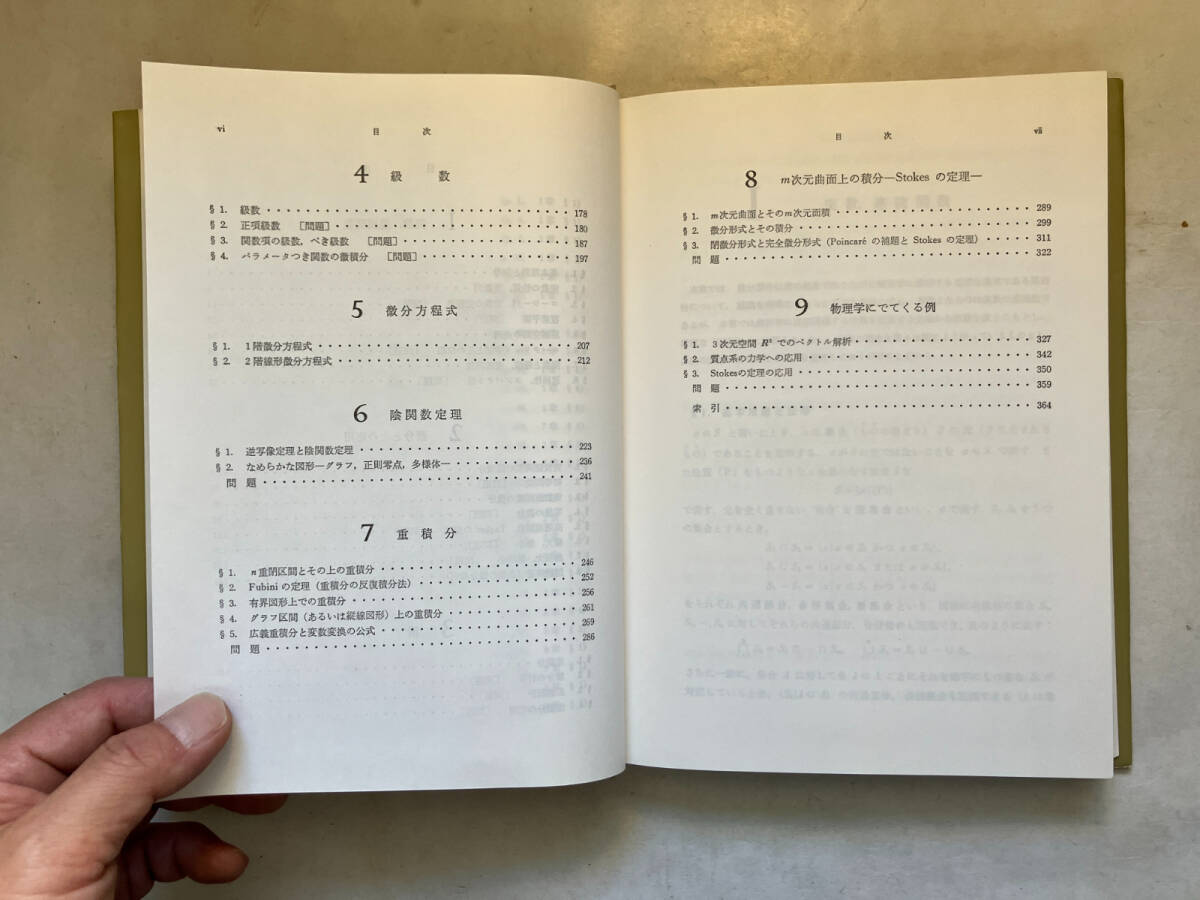 vi
目 次
4 級 数
§ 1. 級数 178
§ 2. 正項級数 [問題] 180
§ 3. 関数項の級数，べき級数 [問題] 187
§ 4. パラメータつき関数の微積分 [問題] 197
5 微分方程式
§ 1. 1階微分方程式 207
§ 2. 2階線形微分方程式 212
6 陰関数定理
§ 1. 逆写像定理と陰関数定理 223
§ 2. なめらかな図形—グラフ，正則零点，多様体— 236
問 題 241
7 重 積 分
§ 1. n重閉区間とその上の重積分 246
§ 2. Fubini の定理（重積分の反復積分法） 252
§ 3. 有界図形上での重積分 256
§ 4. グラフ区間（あるいは縦線図形）上の重積分 261
§ 5. 広義重積分と変数変換の公式 269
問 題 286
目 次
vii
8 m次元曲面上の積分—Stokes の定理—
§ 1. m次元曲面とそのm次元面積 289
§ 2. 微分形式とその積分 299
§ 3. 閉微分形式と完全微分形式（Poincaré の補題と Stokes の定理） 311
問 題 322
9 物理学にでてくる例
§ 1. 3次元空間 R³ でのベクトル解析 327
§ 2. 質点系の力学への応用 342
§ 3. Stokesの定理の応用 350
問 題 359
索 引 364